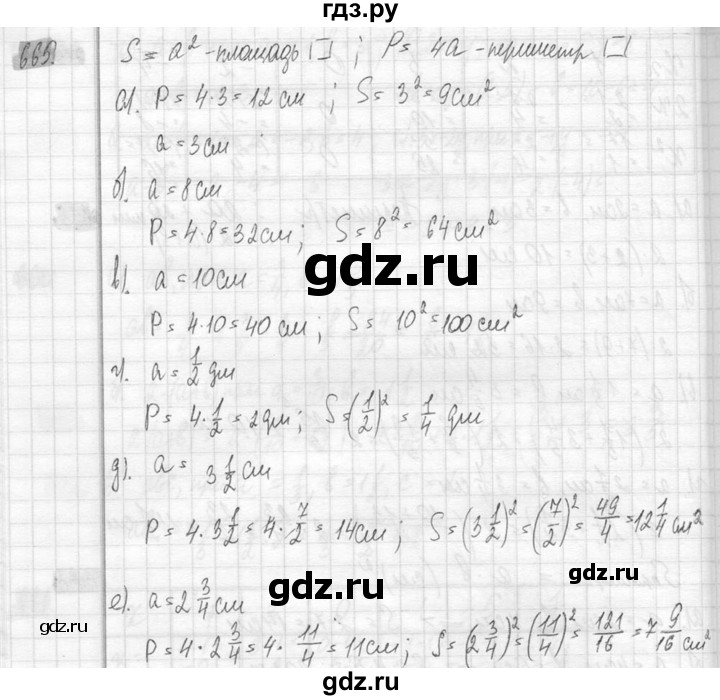 гдз.ру
669. S = a² - площадь □ ; P = 4a - периметр □
а). P = 4·3 = 12 см ; S = 3² = 9 см²
a = 3 см
б). a = 8 см
P = 4·8 = 32 см ; S = 8² = 64 см²
gdz.ru
в). a = 10 см
P = 4·10 = 40 см ; S = 10² = 100 см²
г). a = 1/2 дм
P = 4·1/2 = 2 дм ; S = (1/2)² = 1/4 дм
gdz.ru
д). a = 3 1/2 см
P = 4·3 1/2 = 4·7/2 = 14 см ; S = (3 1/2)² = (7/2)² = 49/4 = 12 1/4 см²
gdz.ru
е). a = 2 3/4 см
P = 4·2 3/4 = 4·11/4 = 11 см ; S = (2 3/4)² = (11/4)² = 121/16 = 7 9/16 см²
gdz.ru